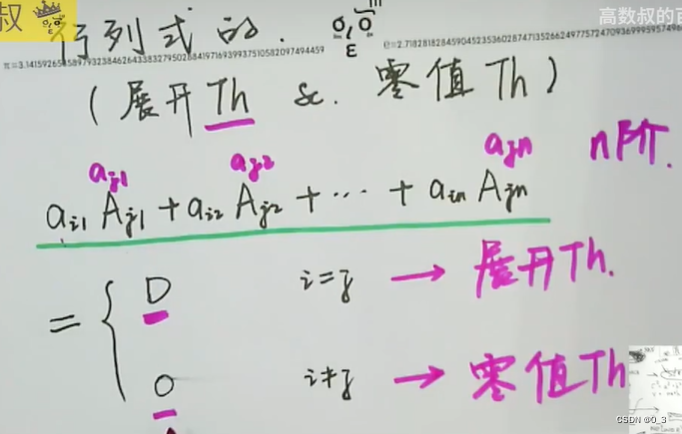 叔
高数叔的百
行列式的.
(展开Th & 零值Th)
a_{j1} a_{j2} a_{jn} n阶.
a_{i1} A_{j1} + a_{i2} A_{j2} + ··· + a_{in} A_{jn}
= { D i=j → 展开Th.
0 i≠j → 零值Th
CSDN @0_3